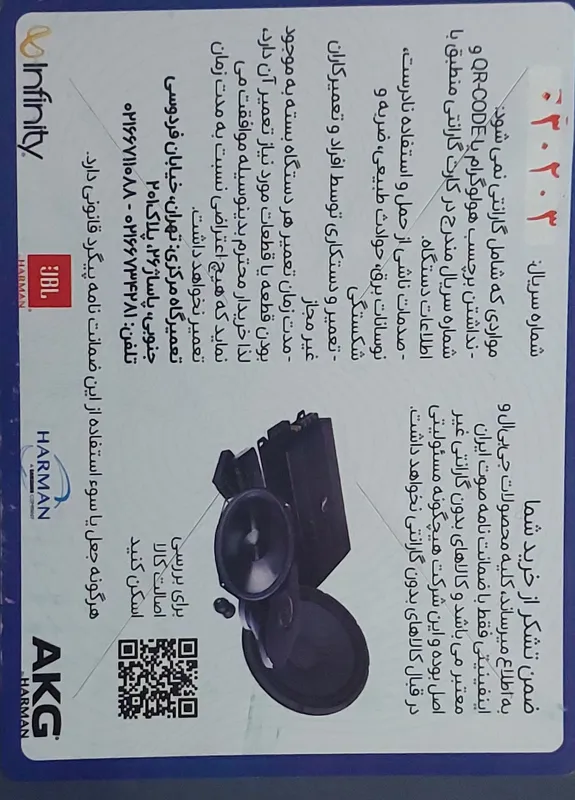 ضمن تشکر از خرید شما
به اطلاع میرساند، کلیه محصولات جی بی ال و
اینفینیتی فقط با ضمانت نامه صوت ایران
معتبر می باشد و کالاهای بدون گارانتی غیر
اصل بوده و این شرکت هیچگونه مسئولیتی
در قبال کالاهای بدون گارانتی نخواهد داشت.
برای بررسی
اصالت کالا
اسکن کنید
شماره سریال:
۰۳۰۲۰۳
مواردی که شامل گارانتی نمی شود:
- نداشتن برچسب هولوگرام یا QR-CODE و
شماره سریال مندرج در کارت گارانتی منطبق با
اطلاعات دستگاه.
- صدمات ناشی از حمل و استفاده نادرست،
نوسانات برق، حوادث طبیعی، ضربه و
شکستگی
- تعمیر و دستکاری توسط افراد و تعمیرکاران
غیر مجاز
- مدت زمان تعمیر هر دستگاه بسته به موجود
بودن قطعه یا قطعات مورد نیاز تعمیر آن دارد،
لذا خریدار محترم بدینوسیله موافقت می
نماید که هیچ اعتراضی نسبت به مدت زمان
تعمیر نخواهد داشت.
تعمیرگاه مرکزی: تهران، خیابان فردوسی
جنوبی، پاساژ ۲۶، پلاک ۲۰۱
تلفن: ۰۲۱۶۶۷۳۴۲۸۱ - ۰۲۱۶۶۷۱۱۰۸۸
هرگونه جعل یا سوء استفاده از این ضمانت نامه پیگرد قانونی دارد.
Infinity
JBL
HARMAN
HARMAN
A SAMSUNG COMPANY
AKG
by HARMAN